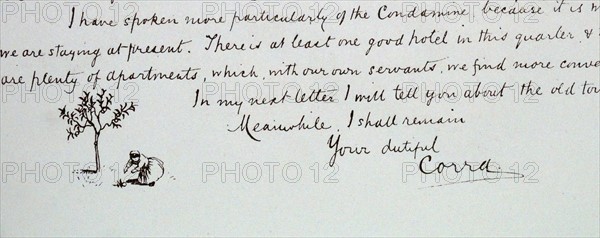 I have spoken more particularly of the Condamine because it is
we are staying at present. There is at least one good hotel in this quarter &
are plenty of apartments, which, with our own servants, we find more
In my next letter I will tell you about the old
Meanwhile, I shall remain
Your dutiful
Corra
PHOTO 12 PHOTO 12 PHOTO 12 PHOTO 12
PHOTO 12 PHOTO 12 PHOTO 12 PHOTO 12